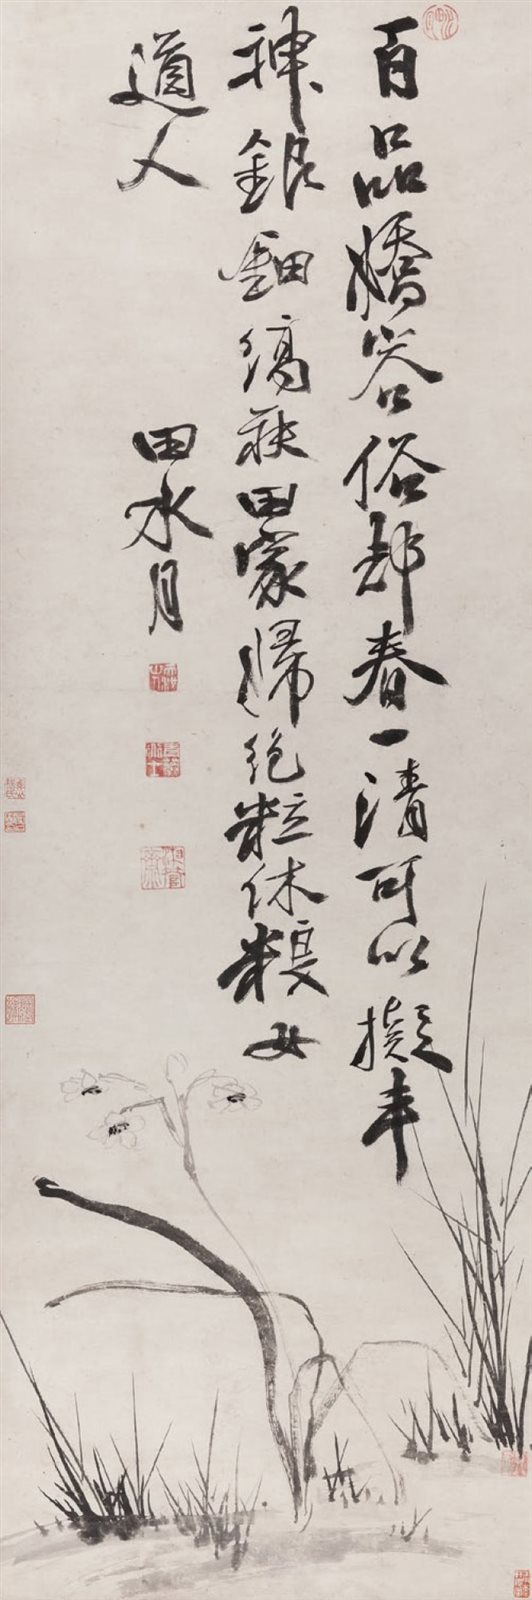 百品嬌容俗却春一清可以擬丰
神銀鈿縞袂田家婦絕粒休粮女
道人
田水月